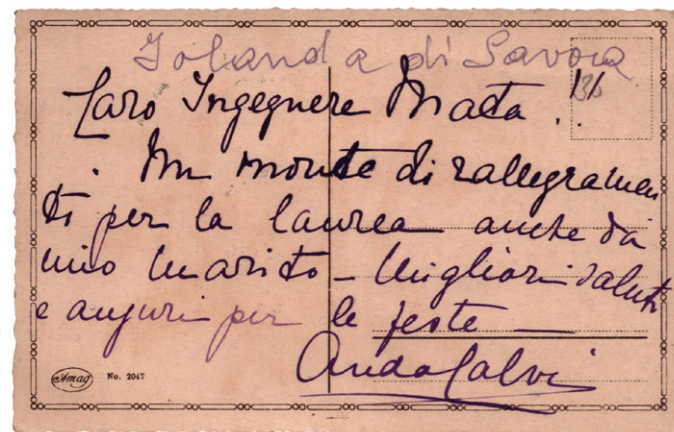 Iolanda di Savoia
Caro Ingegnere Mata!!
30
Un monte di rallegramen
ti per la laurea anche da
mio marito - Migliori saluti
e auguri per le feste -
Calvi
Amag No. 2047